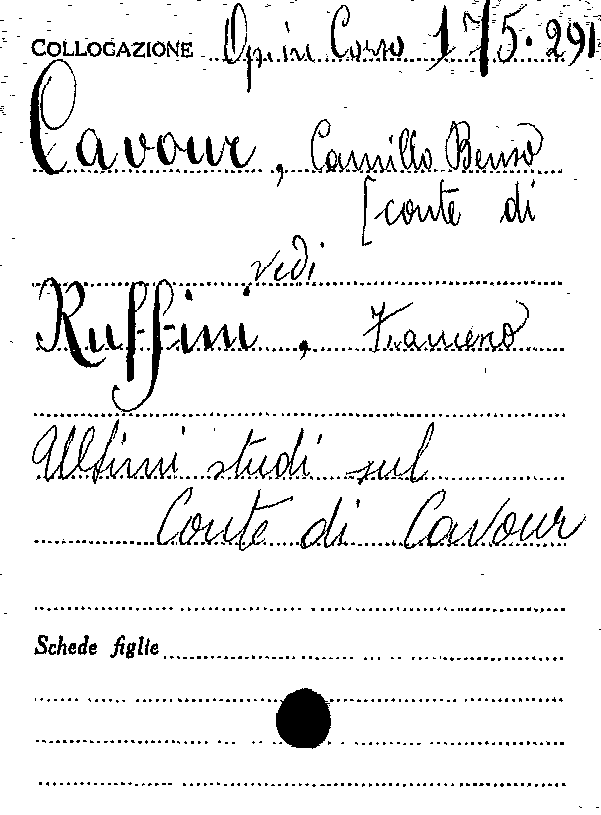 COLLOCAZIONE Op. in Corso 175.291
Cavour, Camillo Benso
[conte di
vedi
Ruffini, Francesco
Ultimi studi sul
Conte di Cavour
Schede figlie